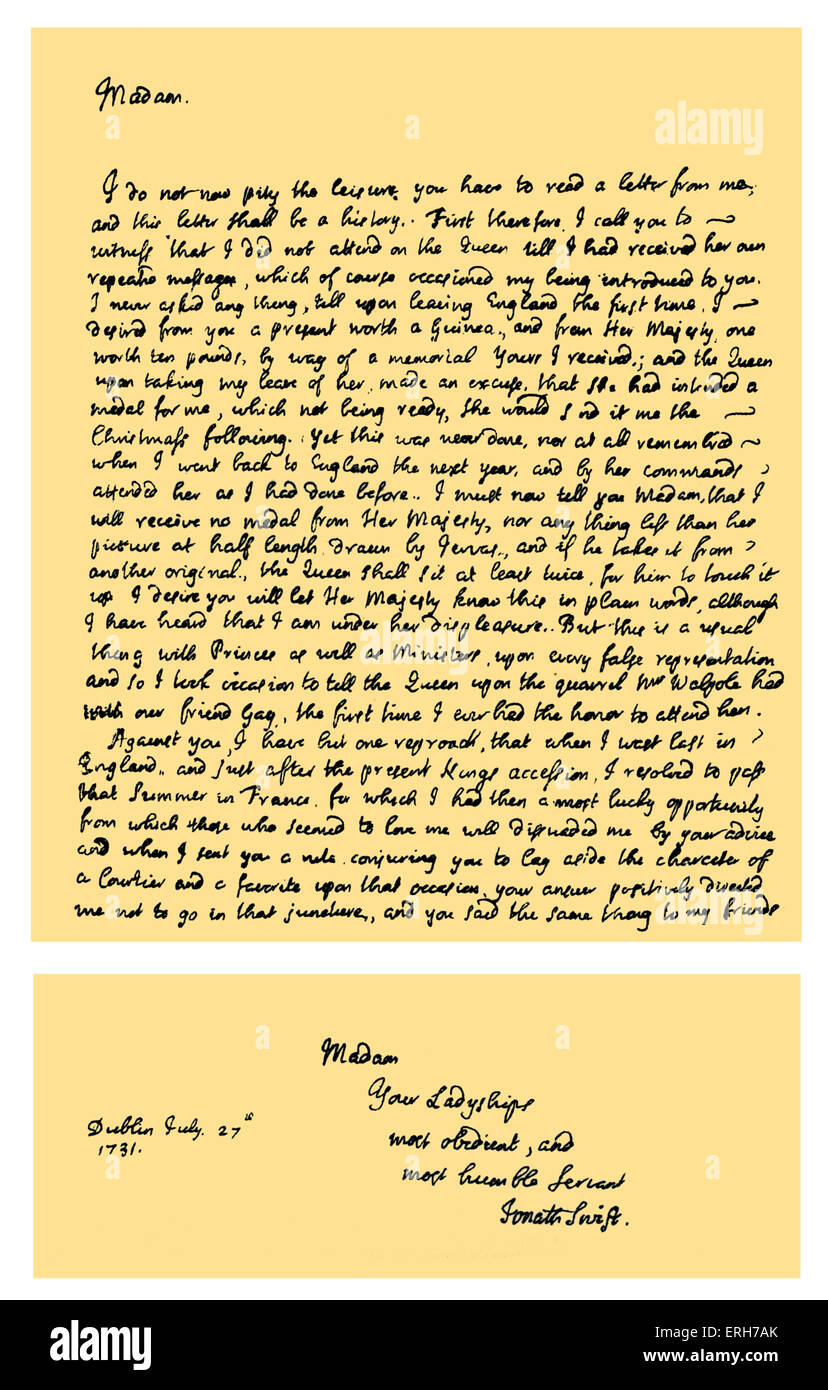 Madam.
I do not now pity the leisure you have to read a letter from me,
and this letter shall be a history. First therefore, I call you to
witness that I did not attend on the Queen till I had received her own
repeated messages, which of course occasioned my being introduced to you.
I never asked any thing, till upon leaving England the first time, I
desired from you a present worth a Guinea, and from Her Majesty one
worth ten pounds, by way of a memorial Yours I received; and the Queen
upon taking my leave of her made an excuse, that she had intended a
medal for me, which not being ready, she would send it me the
Christmass following. Yet this was never done, nor at all remembred
when I went back to England the next year, and by her commands
attended her as I had done before. I must now tell you Madam, that I
will receive no medal from Her Majesty, nor any thing less than her
picture at half length, drawn by Jervas, and if he takes it from
another original, the Queen shall sit at least twice, for him to touch it
up I desire you will let Her Majesty know this in plain words, although
I have heard that I am under her displeasure. But this is a usual
thing with Princes as well as Ministers, upon every false representation
and so I took occasion to tell the Queen upon the quarrel Mr Walpole had
with our friend Gay, the first time I ever had the honor to attend her.
Against you, I have but one reproach, that when I was last in
England, and just after the present Kings accession, I resolved to pass
that Summer in France, for which I had then a most lucky opportunity
from which those who seemed to love me well disuaded me by your advice
and when I sent you a note conjuring you to lay aside the character of
a Courtier and a favorite upon that occasion, your answer positively directed
me not to go in that juncture, and you said the same thing to my friends
Madam
Your Ladyships
most obedient, and
most humble Servant
Jonath Swift.
Dublin July. 27th
1731.
alamy
alamy
alamy
a
a
a
a
a
a
a
a
a
alamy
Image ID: ERH7AK
www.alamy.com